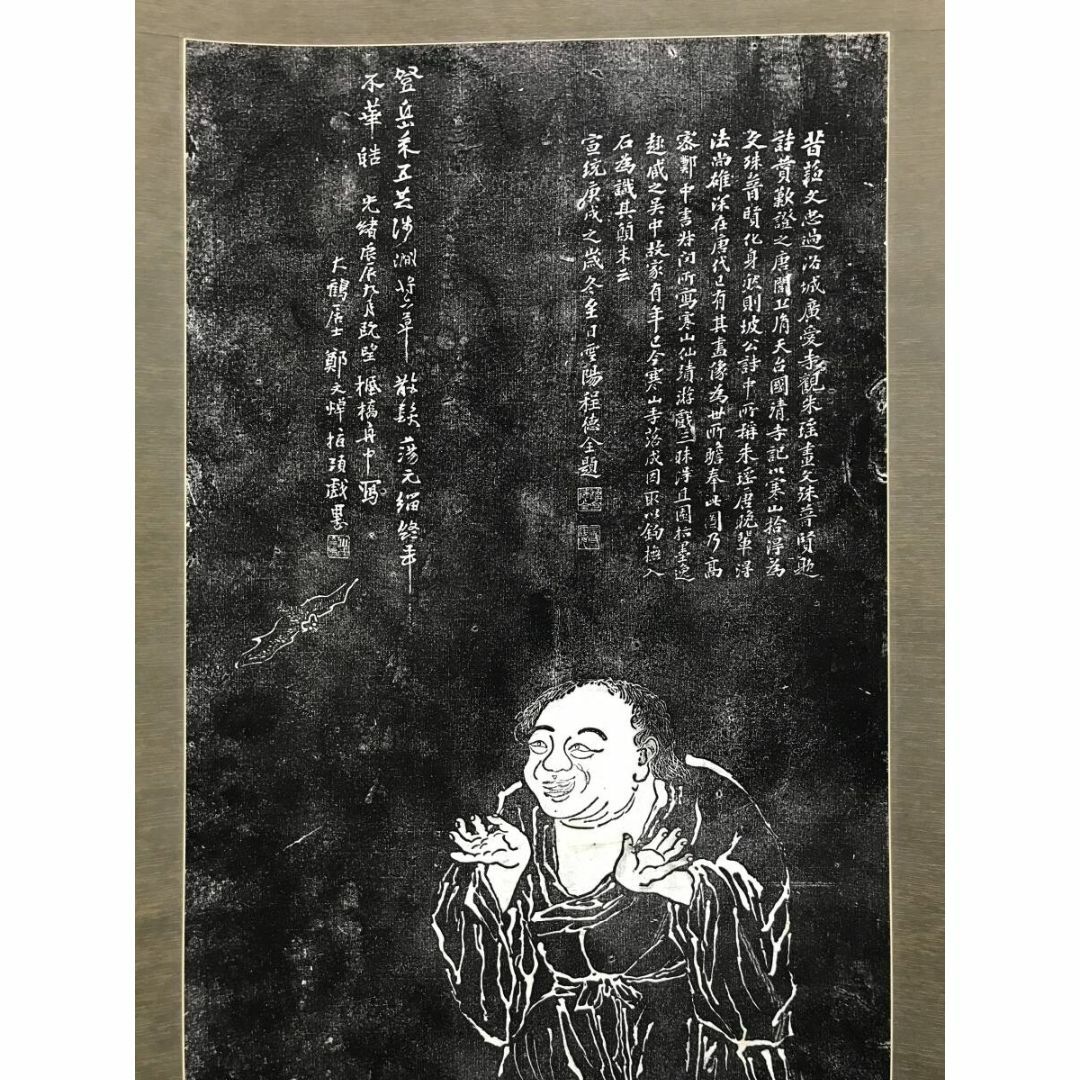 昔蘇文忠過洛城廣愛寺觀朱瑤畫文殊普賢題
詩贊歎證之唐閭丘胤天台國清寺記以寒山拾得為
文殊普賢化身然則坡公詩中所稱朱瑤唐晚輩得
法尚雄深在唐代已有其畫像為世所瞻奉此圖乃高
密鄭中書叔問所寫寒山仙蹟游戲三昧淂且固拈墨
趣咸之吳中故家有年已今寒山寺落成因取以鉤橅入
石為識其顛末云
宣統庚戌之歲冬至日雲陽程德全題
登岳采五芝涉澗將六草散髮蕩元緇終年
不華皓 光緒庚辰九月既望楓橋舟中寫
大鶴居士鄭文焯指頭戲墨